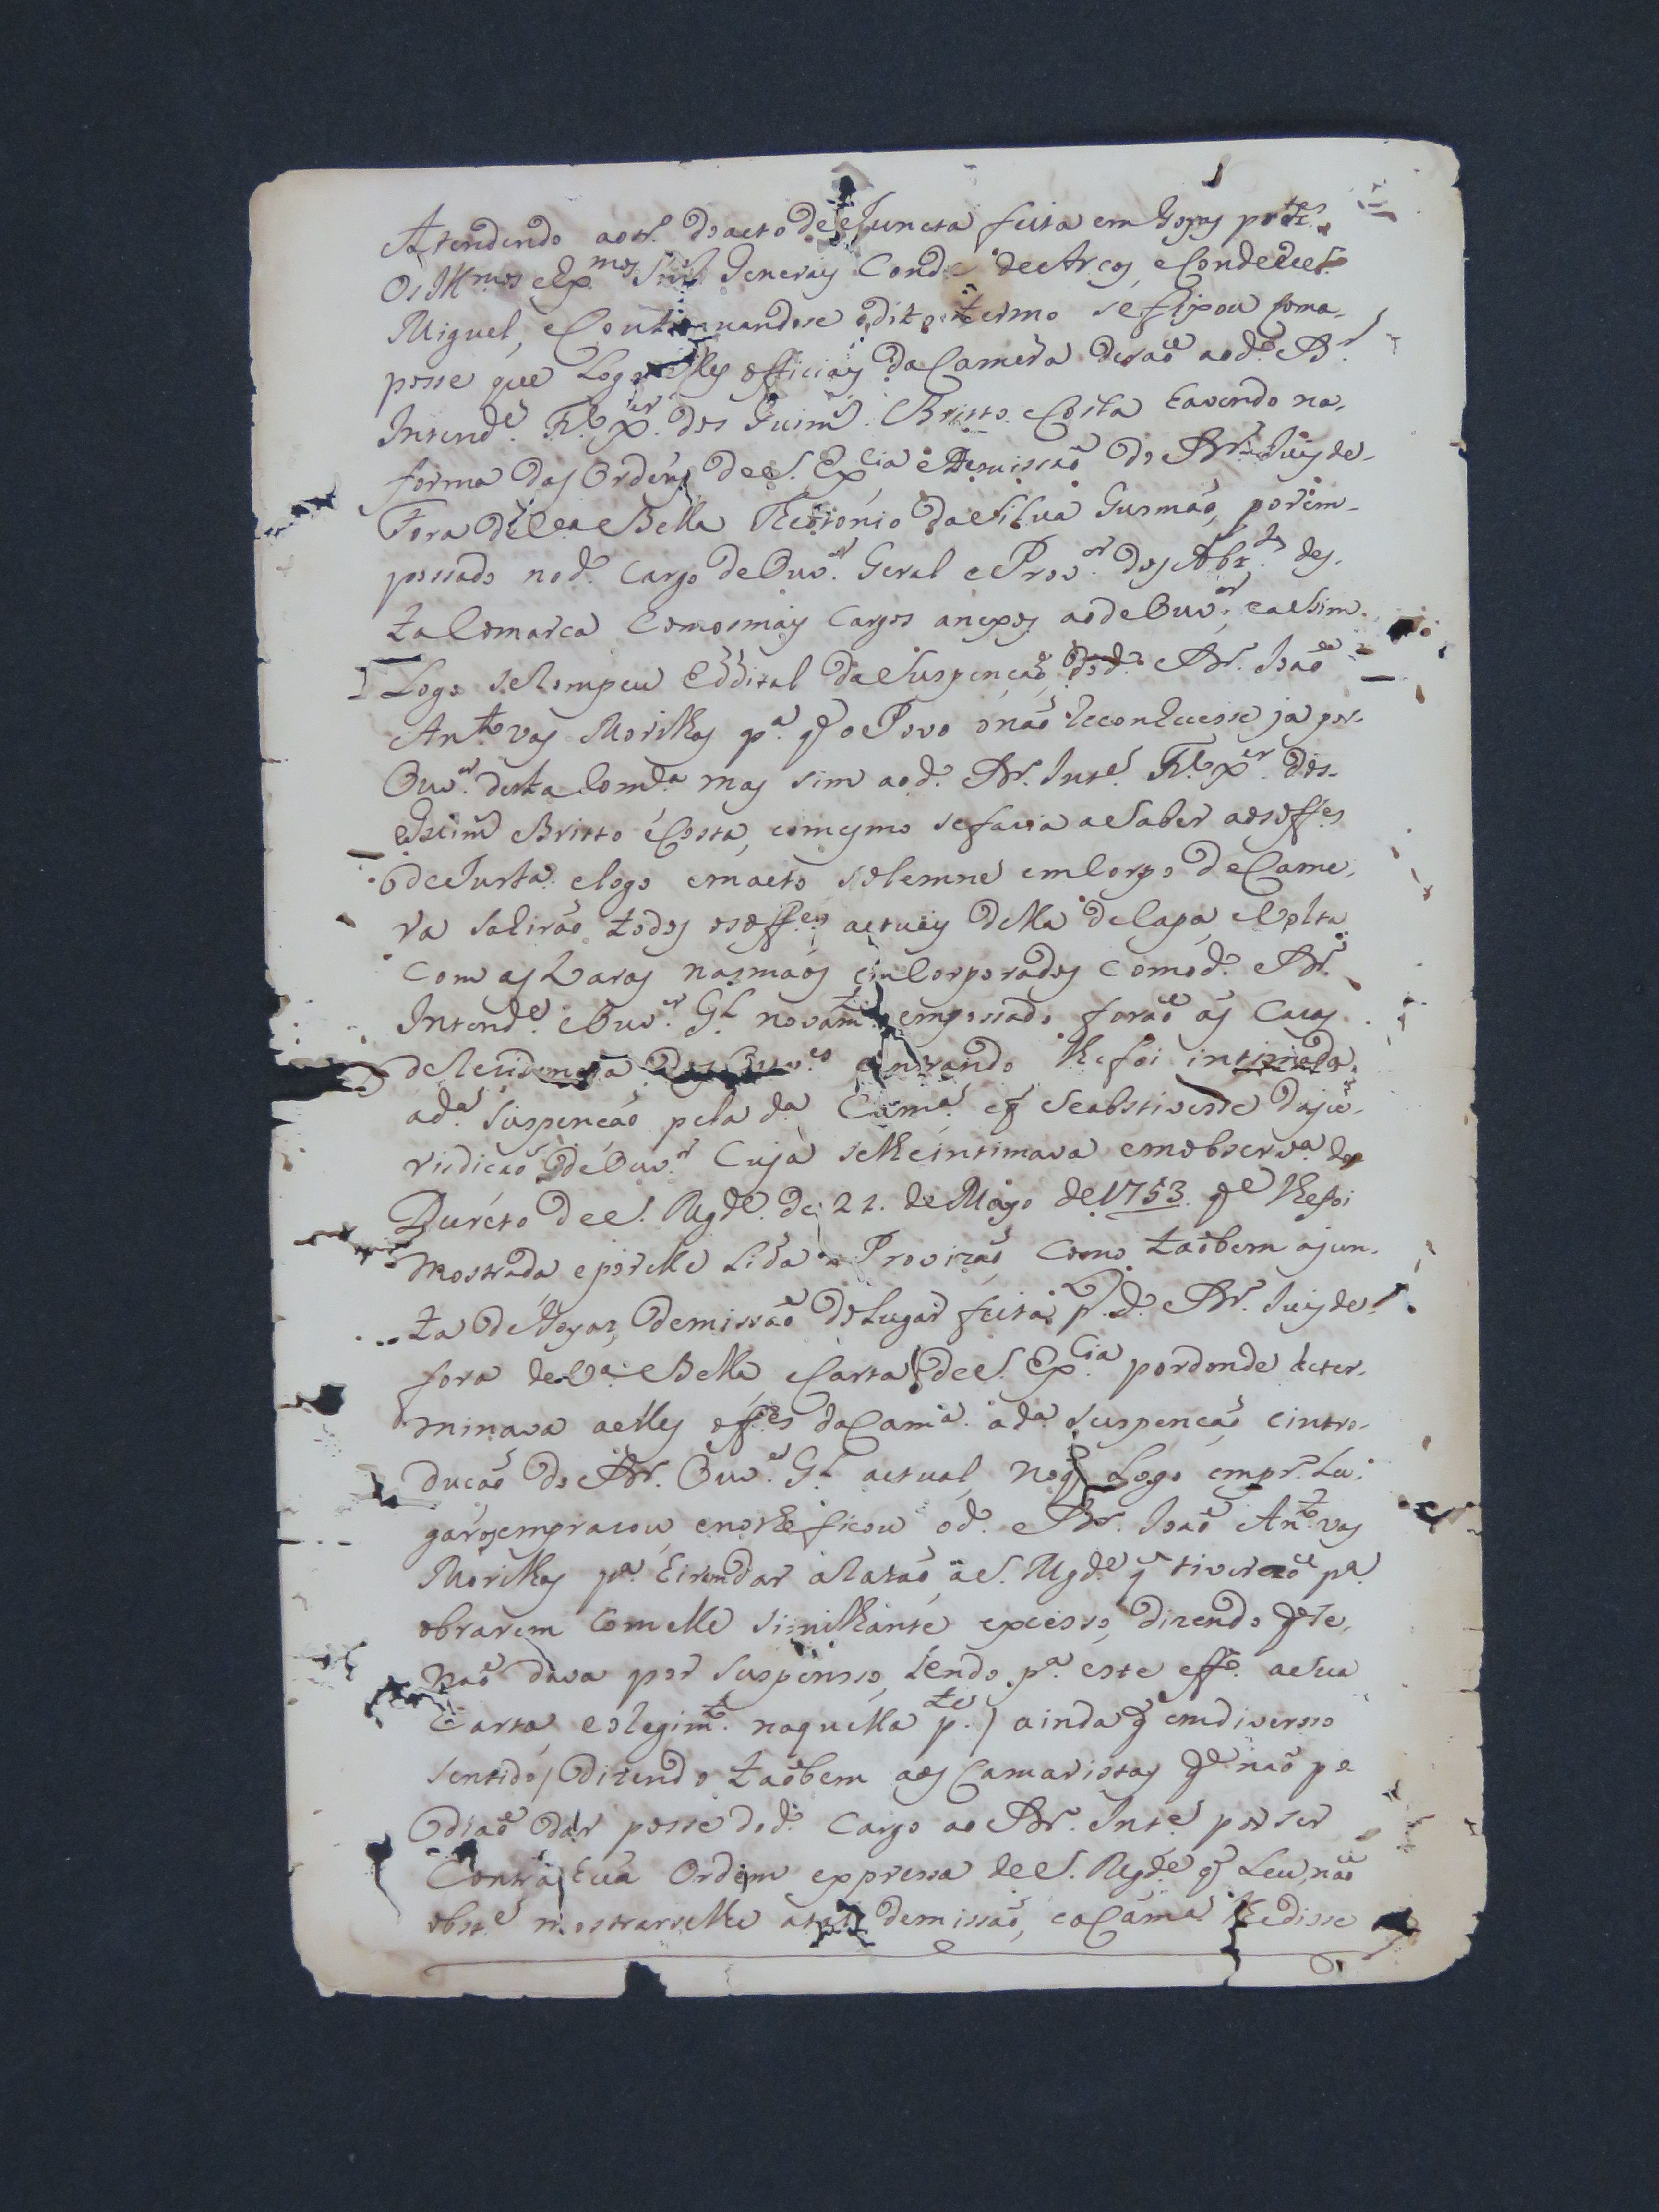 Atendendo aotr. do acto de Juncta feita em Goyas p.
Os Ill.mos e Ex.mos Generaes Conde de Arcos, e Conde de S.
Miguel, e Continuandose o dito termo se fixou foma-
posse que Logo elles officiaes da Camera deraõ ao d.º Dr.
Intend.e Fr.co X.er dos Guim.s Britto e Costa havendo na-
forma das Ordens de S. Ex.cia e Demissaõ do Dr. Juis de-
Fora de V.a Bella Theotonio da Silva Gusmaõ, por em-
possado no d.º Cargo de Ouv.or Geral e Prov.or dos Abz.tes des-
ta Comarca Comosmais Cargos anexos ao de Ouv.or, e aSim-
Logo se Rompeu Eddital da Suspençaõ do d.º Dr. Joaõ
Ant.º vas Morilhas p.a q̃ o Povo o naõ Reconhecesse ja por-
Ouv.or desta Com.ca mas sim ao d.º Dr. Int.e Fr.co X.er dos-
Guim.s Britto e Costa, comesmo sefacia aSaber aos off.es
de Justa. e logo em acto solemne em Corpo de Came-
ra sahiraõ todos os off.es actuais della de Capa, e Volta
Com as Varas nas maõs em Corporados Como d.º Dr.
Intend.e e Ouv.or G.l novam.te empossado foraõ ás Casas
de Residencia dos Ouv.es e entrando lhefoi intimada
a d.a Suspencaõ pela d.a Cam.a e q̃ Se abstivesse da ju-
risdicaõ de Ouv.or Cuja selheintimava em observ.a do
Decreto de S. Mg.de de 22. de Mayo de 1753. q.e lhefoi
mostrada e por elle Lida a Provizaõ, Como taõbem ajun-
ta de Goyaz, demissaõ do Lugar feita p.lo d.º Dr. Juis de-
fora de V.a Bella, e Carta de S. Ex.cia pordonde deter-
minava aelles off.es da Cam.a a d.a Suspencaõ, e intro-
ducaõ do Dr. Ouv.or G.l actual, no q̃ Logo em pr.º Lu-
gar, e no lhe ficou o d.º Dr. Joaõ Ant.º vas
Morilhas p.a Eirondar a Razaõ, a S. Mg.de q̃ tiveraõ p.a
obrarem Comelle Similhante excesso, dizendo q̃ Se-
naõ dava por Suspenso, Sendo p.a este eff.º aSua
Carta, e o Regim.to naquella p.te / ainda q̃ emdiversso
Sentido / dizendo taõbem aos Camaristas q.e naõ po
diaõ dar posse do d.º Cargo ao Dr. Int.e por Ser
Contra hua Ordem expressa de S. Mg.de q̃ Leu, naõ
obst.e mostrarselhe a tal demissaõ, e a Cam.a lhedisse